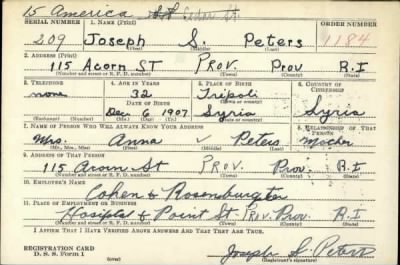 15 America Cedar St.
SERIAL NUMBER 1. NAME (Print) ORDER NUMBER
209 Joseph S. Peters 1184
(First) (Middle) (Last)
2. ADDRESS (Print)
115 Acorn ST PROV. Prov R.I
(Number and street or R. F. D. number) (Town) (County) (State)
3. TELEPHONE 4. AGE IN YEARS 5. PLACE OF BIRTH 6. COUNTRY OF CITIZENSHIP
none 32 Tripoli
DATE OF BIRTH (Town or county)
Dec 6 1907 Syria Syria
(Exchange) (Number) (Mo.) (Day) (Yr.) (State or country)
7. NAME OF PERSON WHO WILL ALWAYS KNOW YOUR ADDRESS 8. RELATIONSHIP OF THAT PERSON
Mrs. Anna Peters Mother
(Mr., Mrs., Miss) (First) (Middle) (Last)
9. ADDRESS OF THAT PERSON
115 Acorn St Prov. Prov. R.I
(Number and street or R. F. D. number) (Town) (County) (State)
10. EMPLOYER'S NAME
Cohen &
11. PLACE OF EMPLOYMENT OR BUSINESS
& Point St. Prov. Prov. R.I
(Number and street or R. F. D. number) (Town) (County) (State)
I AFFIRM THAT I HAVE VERIFIED ABOVE ANSWERS AND THAT THEY ARE TRUE.
REGISTRATION CARD
D. S. S. Form 1 (over) Joseph S. Peters
(Registrant's signature)